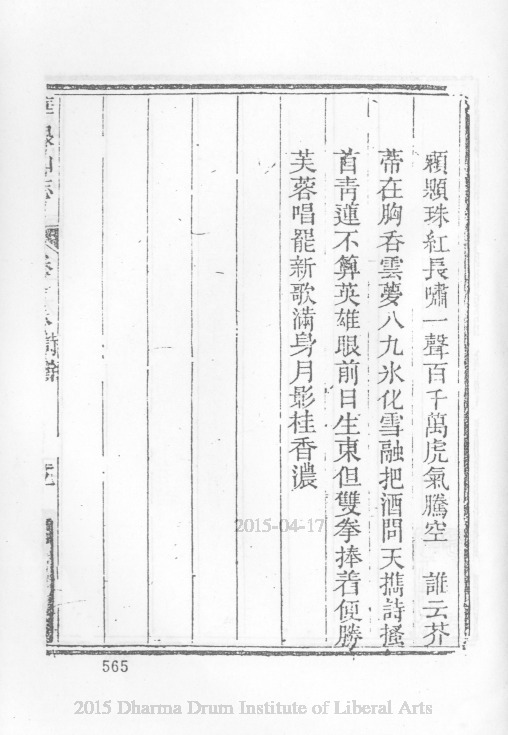 顆顆珠紅長嘯一聲百千萬虎氣騰空　誰云芥
蒂在胸呑雲夢八九氷化雪融把酒問天擕詩搔
首靑蓮不算英雄眼前日生東但雙拳捧着便勝
芙蓉唱罷新歌滿身月影桂香濃
2015-04-17
565
2015 Dharma Drum Institute of Liberal Arts